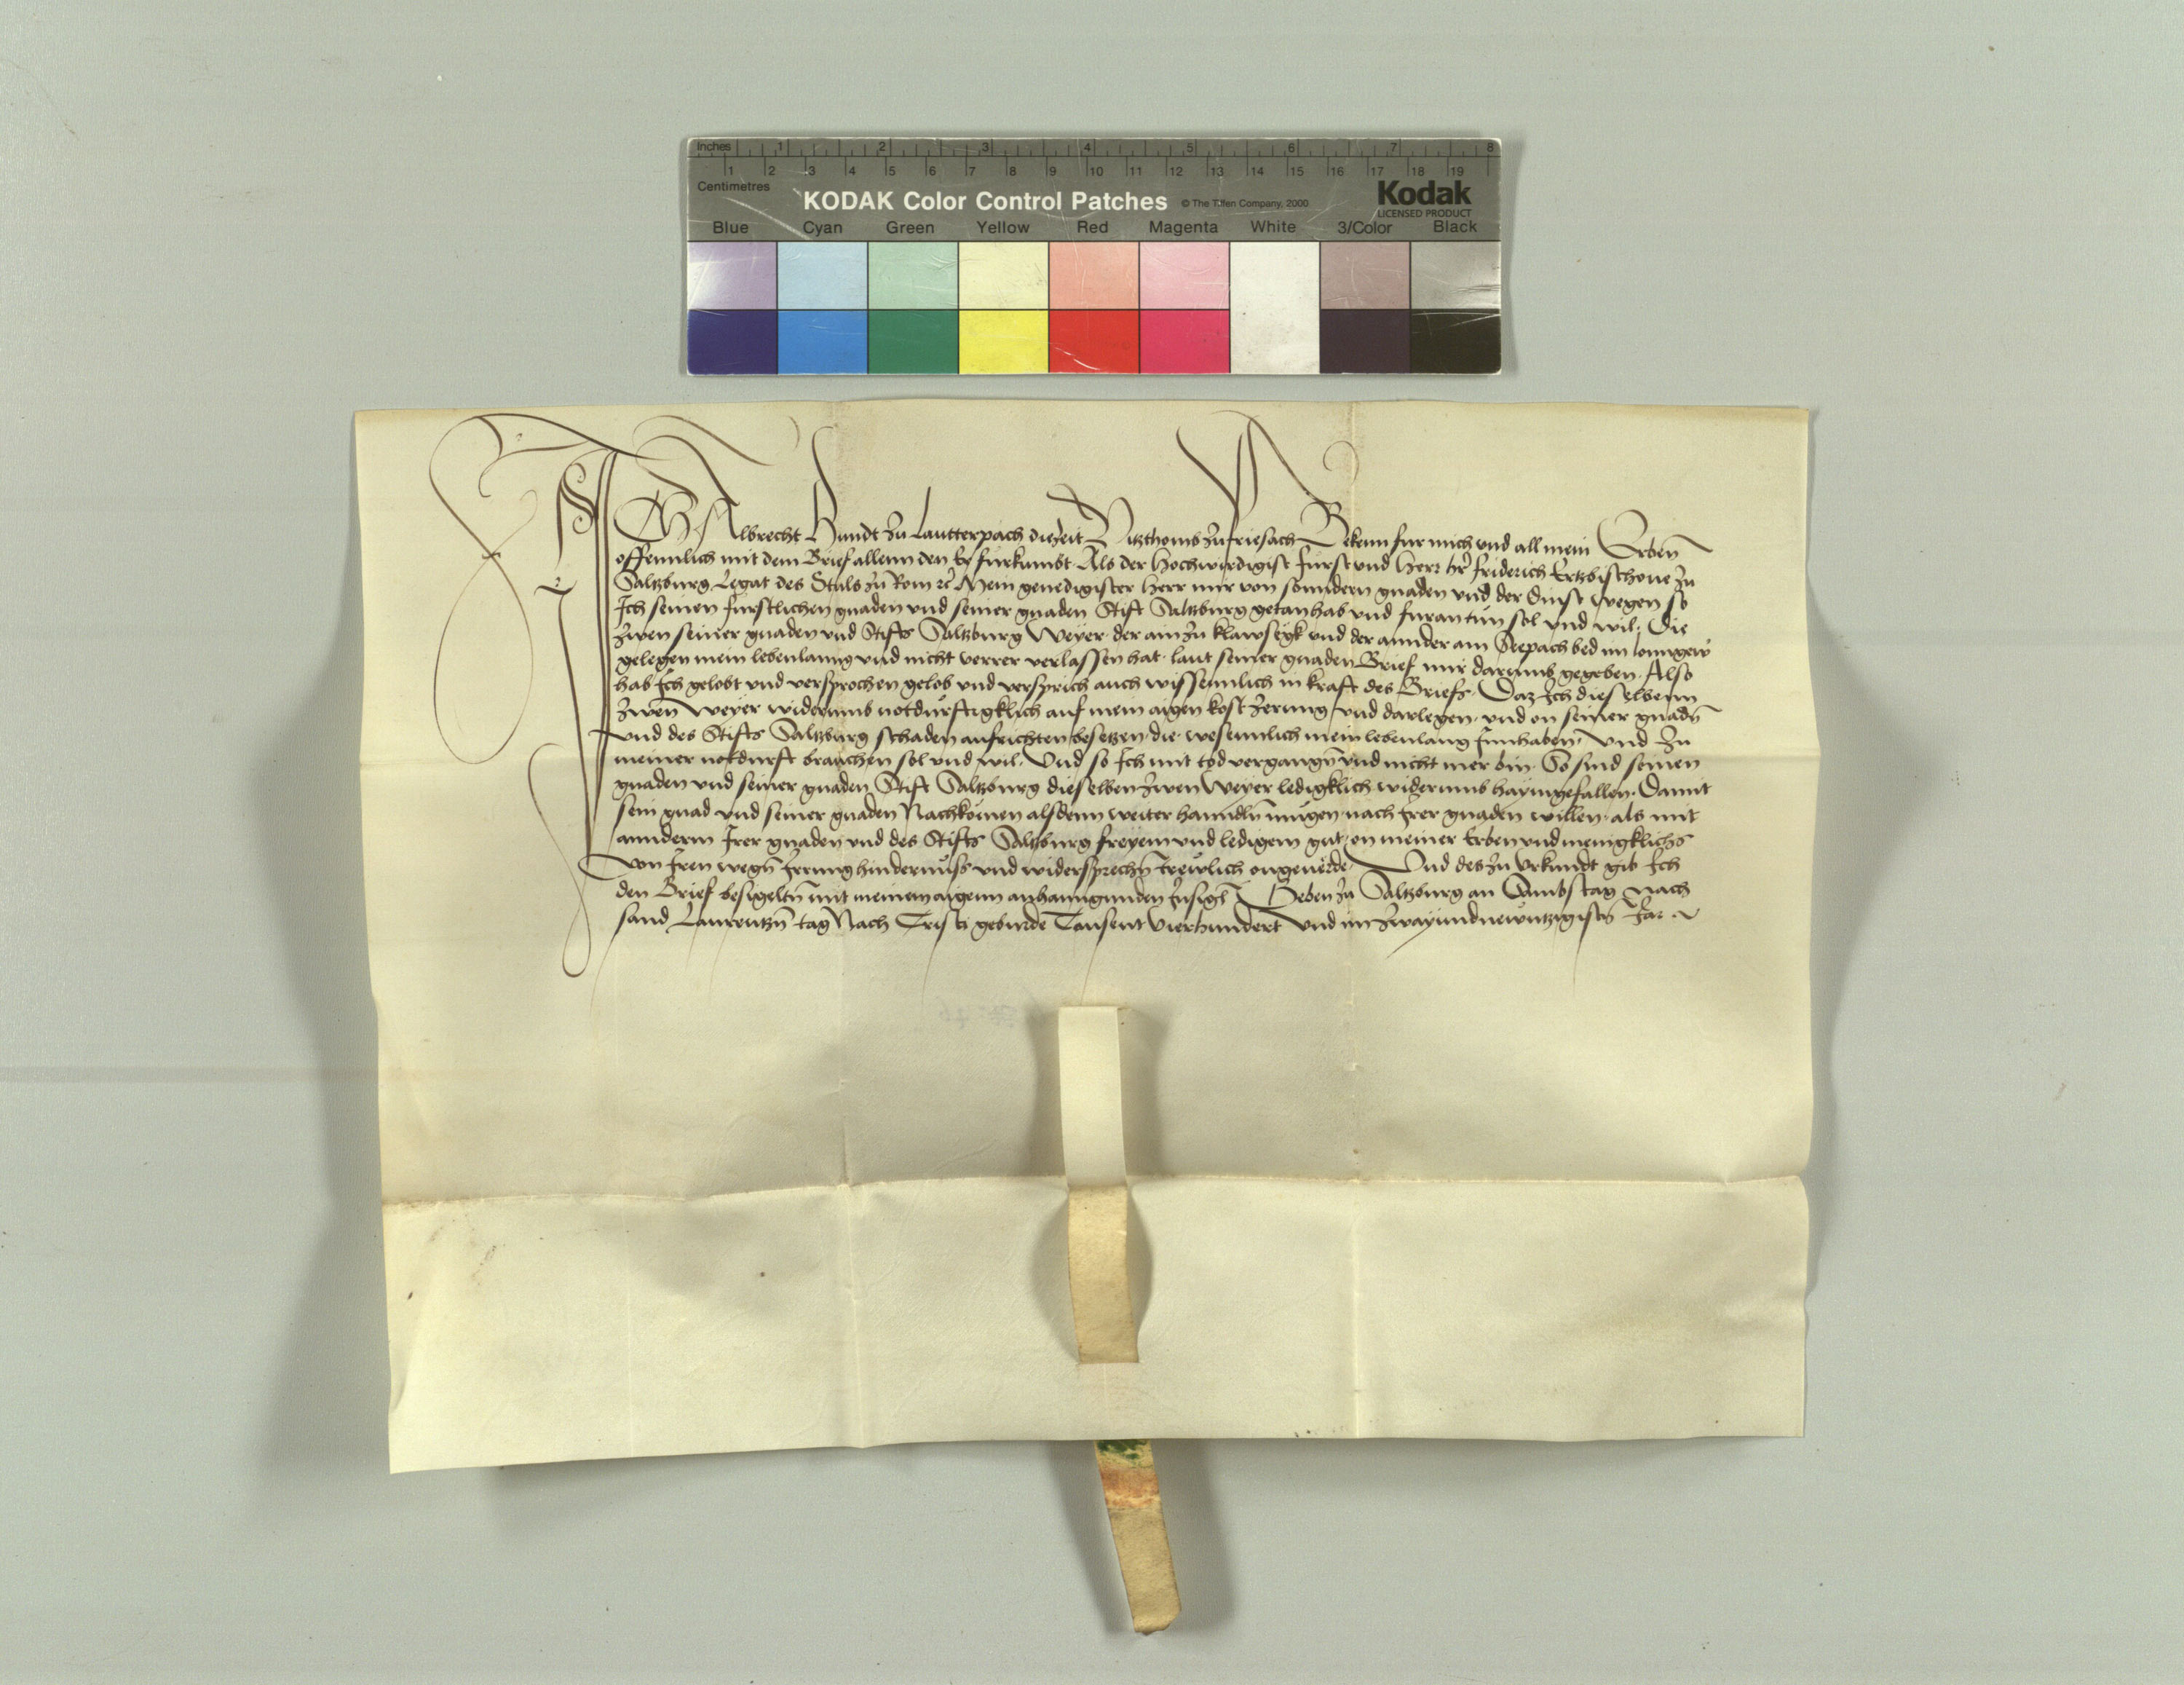 Inches 1 2 3 4 5 6 7 8
1 2 3 4 5 6 7 8 9 10 11 12 13 14 15 16 17 18 19
Centimetres
KODAK Color Control Patches © The Tiffen Company, 2000 Kodak
LICENSED PRODUCT
Blue Cyan Green Yellow Red Magenta White 3/Color Black
ICH Albrecht Hundt zu Lautterpach diezeit Vitzthomb zu friesach Bekenn fur mich und all mein Erbenn
offennlich mit dem Brief allenn den Er furkumbt. Als der Hochwirdigist furst und Herr hr̄ friderich Ertzbischoue zu
Saltzburg Legat des Stuls zu Rom ꝛc̄ Mein genedigister Herr mir von sonndern gnaden und der dinst wegen so
Ich seinen furstlichen gnaden und seiner gnaden Stift Saltzburg getan hab und furan tun sol und wil. Die
zwen seiner gnaden und Stifts Saltzburg Weyer. der ain zu klawsegk und der annder am Seepach bed im lonngew
gelegen mein lebenlanng und nicht verrer verlassen hat. laut seiner gnaden Brief mir darumb gegeben. Also
hab Ich gelobt und versprochen gelob und versprich auch wissennlich in kraft des Briefs. Daz Ich dieselbenn
zwen Weyer widerumb notdurftigklich auf mein aigen kost zerung und darlegen. und on seiner gnadn̄
und des Stifts Saltzburg schaden aufrichten besetzen. die. wesennlich mein lebenlang Innhaben. und zu
meiner notdurft brauchen sol und wil. Und so Ich mit tod vergangn̄ und nicht mer bin. So sind seinen
gnaden und seiner gnaden Stift Saltzburg dieselben zwen Weyer ledigklich widerumb haymgefallen. Damit
sein gnad und seiner gnaden Nachkomen alsdenn weiter hanndln̄ mugen. nach Irer gnaden willen. als mit
annderm Irer gnaden und des Stifts Saltzburg freyem und ledigem gut. on meiner Erben und menigklichs
von Iren wegn̄ Irrung hindernuss und widersprechn̄ trewlich ongeuerde. Und des zu Urkundt gib Ich
den Brief besigeltn̄ mit meinem aigenn anhanngunden Insigl̄ Geben zu Saltzburg an Sambstag nach
sand Laurentzn̄ tag Nach Cristi geburde Tausent vierhundert und im zwayundnewntzigisten Jar.